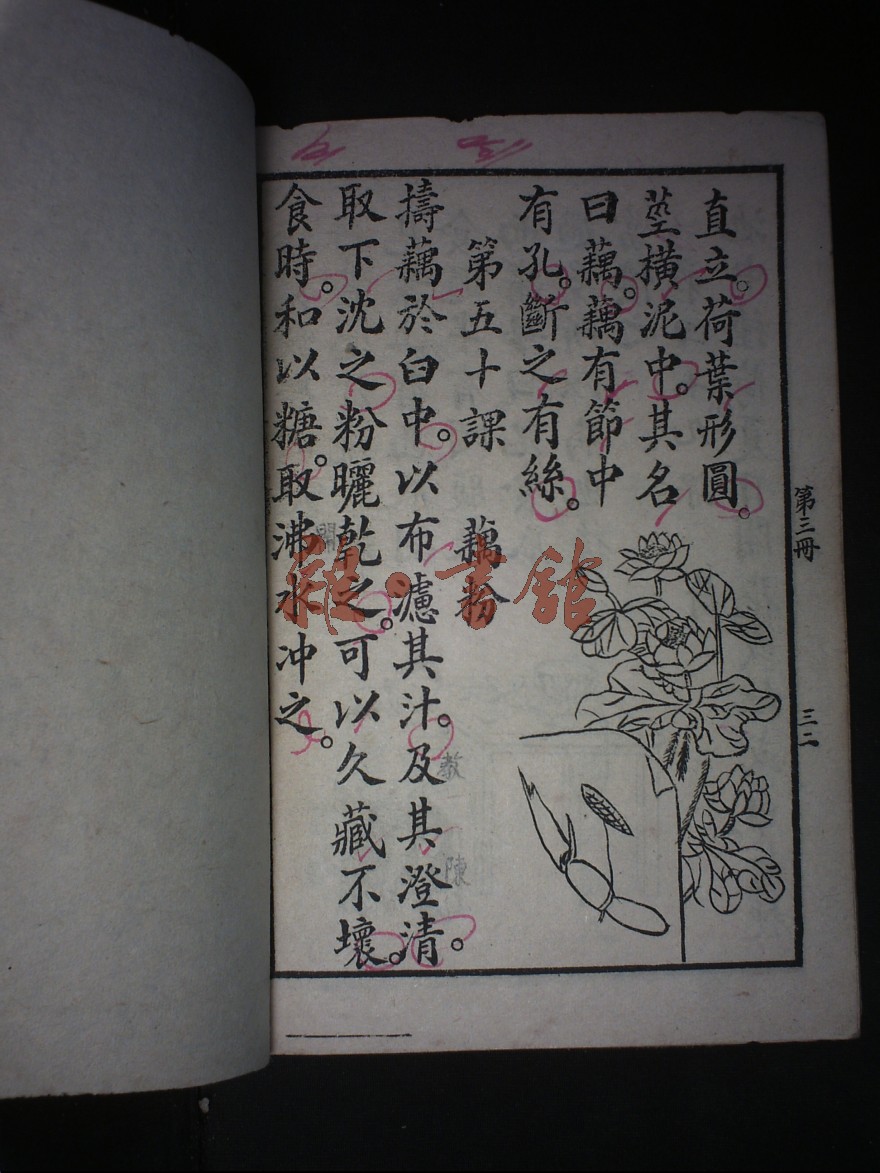 直立。荷葉形圓。
莖橫泥中。其名
曰藕。藕有節中
有孔。斷之有絲。
第五十課　藕粉
擣藕於臼中。以布濾其汁。及其澄清。
取下沈之粉曬乾之。可以久藏不壞。
食時。和以糖。取沸水沖之。
第三冊
三二
書館